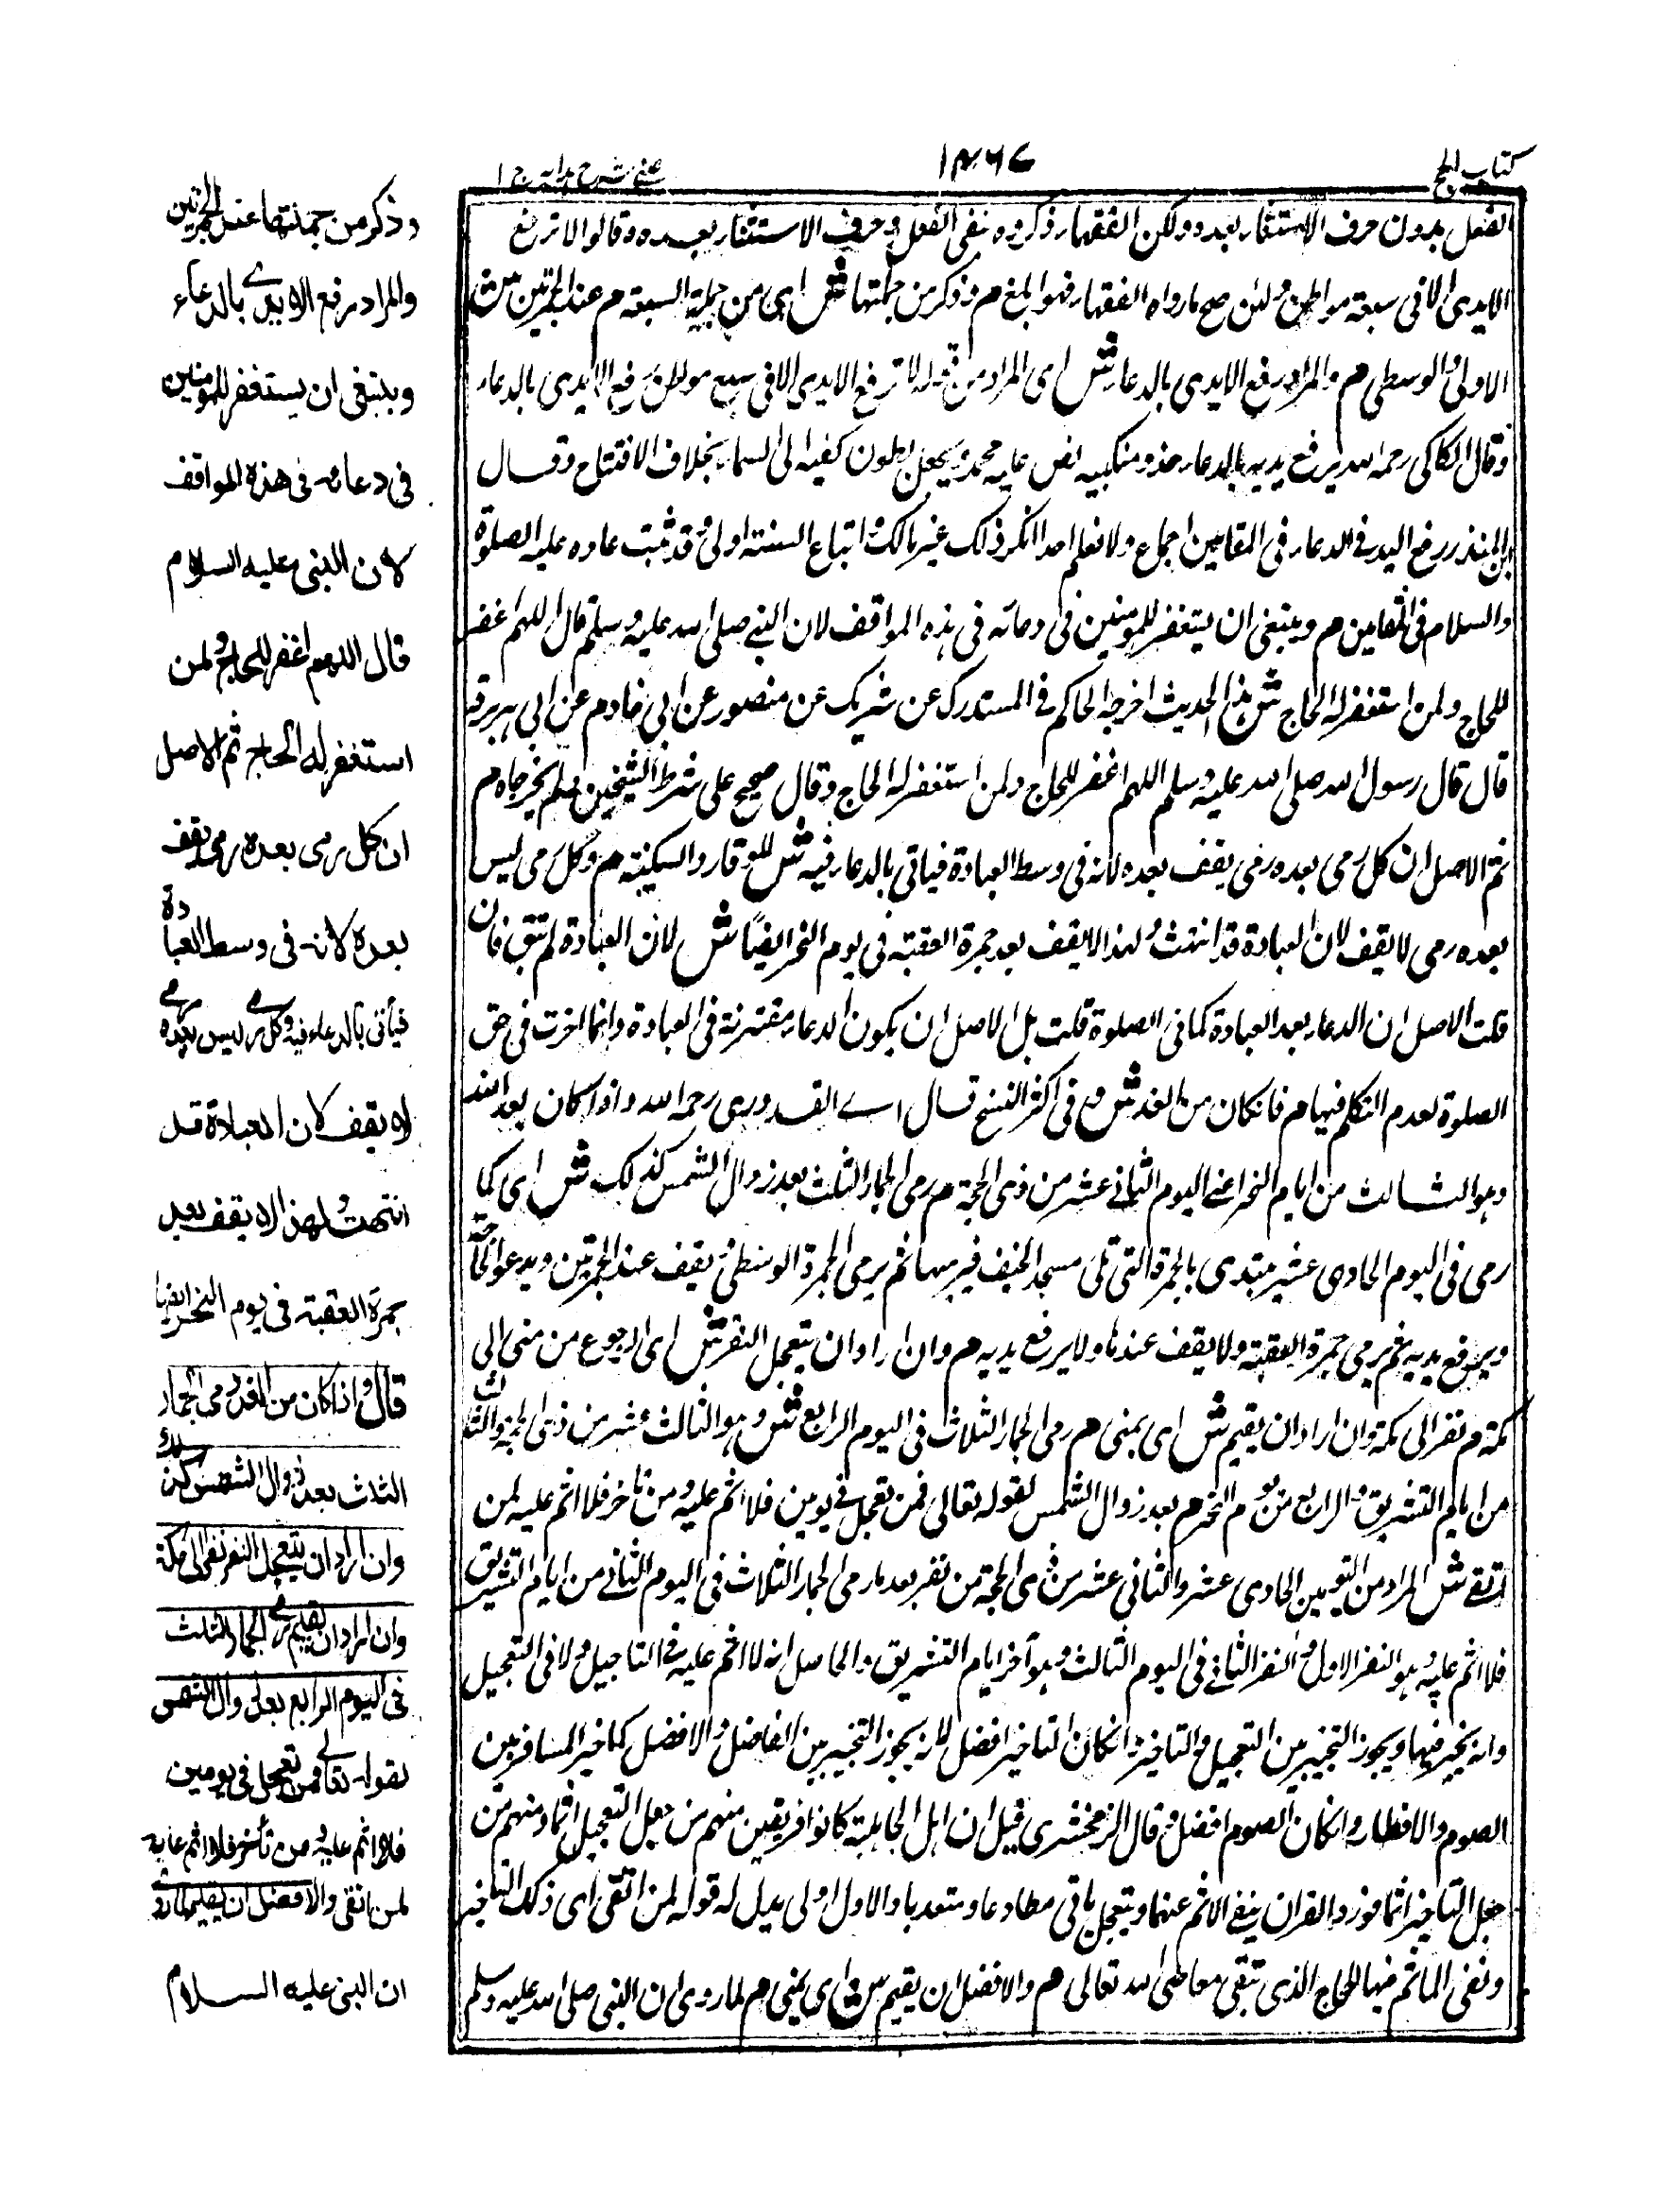 كتاب الحج
١٤٦٧
عينى شرح هدايه ج ١
الفعل بدون حرف الاستثناء بعده ولكن الفقهاء ذكروه نفى الفعل وحرف الاستثناء بعده وقالوا لا ترفع
الايدى الا فى سبعة مواطن ولئن صح ما رواه الفقهاء فهو ابلغ م وذكر من جملتها ش اى من جملة السبعة م عند الجمرتين ش
الاولى والوسطى م والمراد رفع الايدى بالدعاء ش اى المراد من قوله لا ترفع الايدى الا فى سبع مواطن رفع الايدى بالدعاء
وقال الكاكى رحمه الله يرفع يديه بالدعاء حذو منكبيه نص عليه محمد ويجعل بطون كفيه الى السماء بخلاف الافتتاح وقال
ابن المنذر رفع اليد فى الدعاء فى المقامين اجماع ولا نعلم احدا انكر ذلك غير مالك واتباع السنة اولى وقد ثبت عاده عليه الصلوة
والسلام فى المقامين م وينبغى ان يستغفر للمومنين فى دعائه فى هذه المواقف لان النبى صلى الله عليه وسلم قال اللهم اغفر
للحاج ولمن استغفر له الحاج ش هذا الحديث اخرجه الحاكم فى المستدرك عن شريك عن منصور عن ابى خادم عن ابى هريرة
قال قال رسول الله صلى الله عليه وسلم اللهم اغفر للحاج ولمن استغفر له الحاج وقال صحيح على شرط الشيخين ولم يخرجاه م
ثم الاصل ان كل رمى بعده رمى يقف بعده لانه فى وسط العبادة فياتى بالدعاء فيه ش للوقار والسكينة م وكل رمى ليس
بعده رمى لا يقف لان العبادة قد انتهت ولهذا لا يقف بعد جمرة العقبة فى يوم النحر ايضا ش لان العبادة لم تبق فان
قلت الاصل ان الدعاء بعد العبادة كما فى الصلوة قلت بل الاصل ان يكون الدعاء مقترنة فى العبادة وانما اخرت فى حق
الصلوة لعدم التكلم فيها م فاذا كان من الغد ش وفى اكثر النسخ قال اے القدورى رحمه الله واذا كان بعد الغد
وهو الثالث من ايام النحر اعنى اليوم الثانى عشر من ذى الحجة م رمى الجمار الثلث بعد زوال الشمس كذلك ش اى كما
رمى فى اليوم الحادى عشر يبتدى بالجمرة التى تلى مسجد الخيف فيرميها ثم يرمى الجمرة الوسطى ويقف عند الجمرتين ويدعو
ويرفع يديه ثم يرمى جمرة العقبة ولا يقف عندها ولا يرفع يديه م وان اراد ان يتعجل النفر ش اى الرجوع من منى الى
مكة م نفر الى مكة وان اراد ان يقيم ش اى بمنى م رمى الجمار الثلاث فى اليوم الرابع ش وهو الثالث عشر من ذى الحجة والثالث
من ايام التشريق والرابع من يوم النحر م بعد زوال الشمس لقوله تعالى فمن تعجل فى يومين فلا اثم عليه ومن تأخر فلا اثم عليه لمن
اتقى ش المراد من اليومين الحادى عشر والثانى عشر من ذى الحجة من نفر بعد ما رمى الجمار الثلاث فى اليوم الثانى من ايام التشريق
فلا اثم عليه وهو النفر الاول والنفر الثانى فى اليوم الثالث وهو آخر ايام التشريق والحاصل انه لا اثم عليه فى التاجيل ولا فى التعجيل
وانه يخير فيها ويجوز التخيير بين التعجيل والتاخير وان كان التاخير افضل لانه يجوز التخيير بين الفاضل والافضل كما خير المسافر بين
الصوم والافطار وان كان الصوم افضل وقال الزمخشرى قيل ان اهل الجاهلية كانوا فريقين منهم من جعل التعجيل اثما ومنهم من
جعل التاخير اثما فورد القران ينفى الاثم عنهما وتعجل باقى مطاوعا ومتعديا والاول اولى يدل له قوله لمن اتقى اى ذلك التاخير
ونفى الماثم فيها للحاج الذى تبقى معاصى الله تعالى م والافضل ان يقيم ش اى بمنى م لما روى ان النبى صلى الله عليه وسلم
وذكر من جملتها عند الجمرتين
والمراد رفع الايدى بالدعاء
وينبغى ان يستغفر للمومنين
فى دعائه فى هذه المواقف
لان النبى عليه السلام
قال اللهم اغفر للحاج ولمن
استغفر له الحاج ثم الاصل
ان كل رمى بعده رمى يقف
بعده لانه فى وسط العبادة
فيأتى بالدعاء فيه وكل رمى ليس بعده رمى
لا يقف لان العبادة قد
انتهت ولهذا لا يقف بعد
جمرة العقبة فى يوم النحر ايضا
قال واذا كان من الغد رمى الجمار
الثلاث بعد زوال الشمس كذلك
وان اراد ان يتعجل النفر نفر الى مكة
وان اراد ان يقيم رمى الجمار الثلث
فى اليوم الرابع بعد زوال الشمس
لقوله تعالى فمن تعجل فى يومين
فلا اثم عليه ومن تأخر فلا اثم عليه
لمن اتقى والافضل ان يقيم لما روى
ان النبى عليه السلام